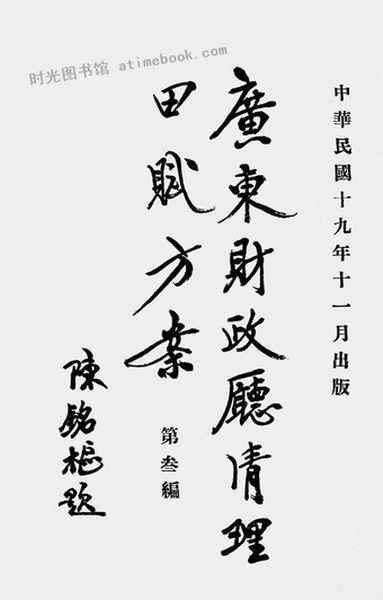 时光图书馆 atimebook.com
中華民國十九年十一月出版
廣東財政廳清理
田賦方案
第叁編
陳銘樞題